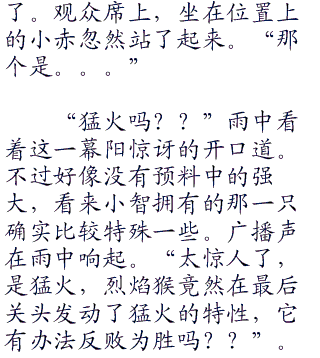 了。观众席上，坐在位置上
的小赤忽然站了起来。“那
个是。。。”
“猛火吗？？”雨中看
着这一幕阳惊讶的开口道。
不过好像没有预料中的强
大，看来小智拥有的那一只
确实比较特殊一些。广播声
在雨中响起。“太惊人了，
是猛火，烈焰猴竟然在最后
关头发动了猛火的特性，它
有办法反败为胜吗？？”。